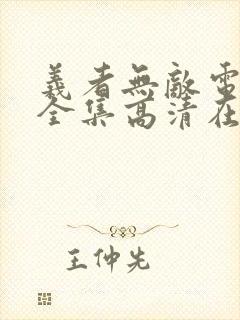 義者無敵電
全集高清在
王仲先